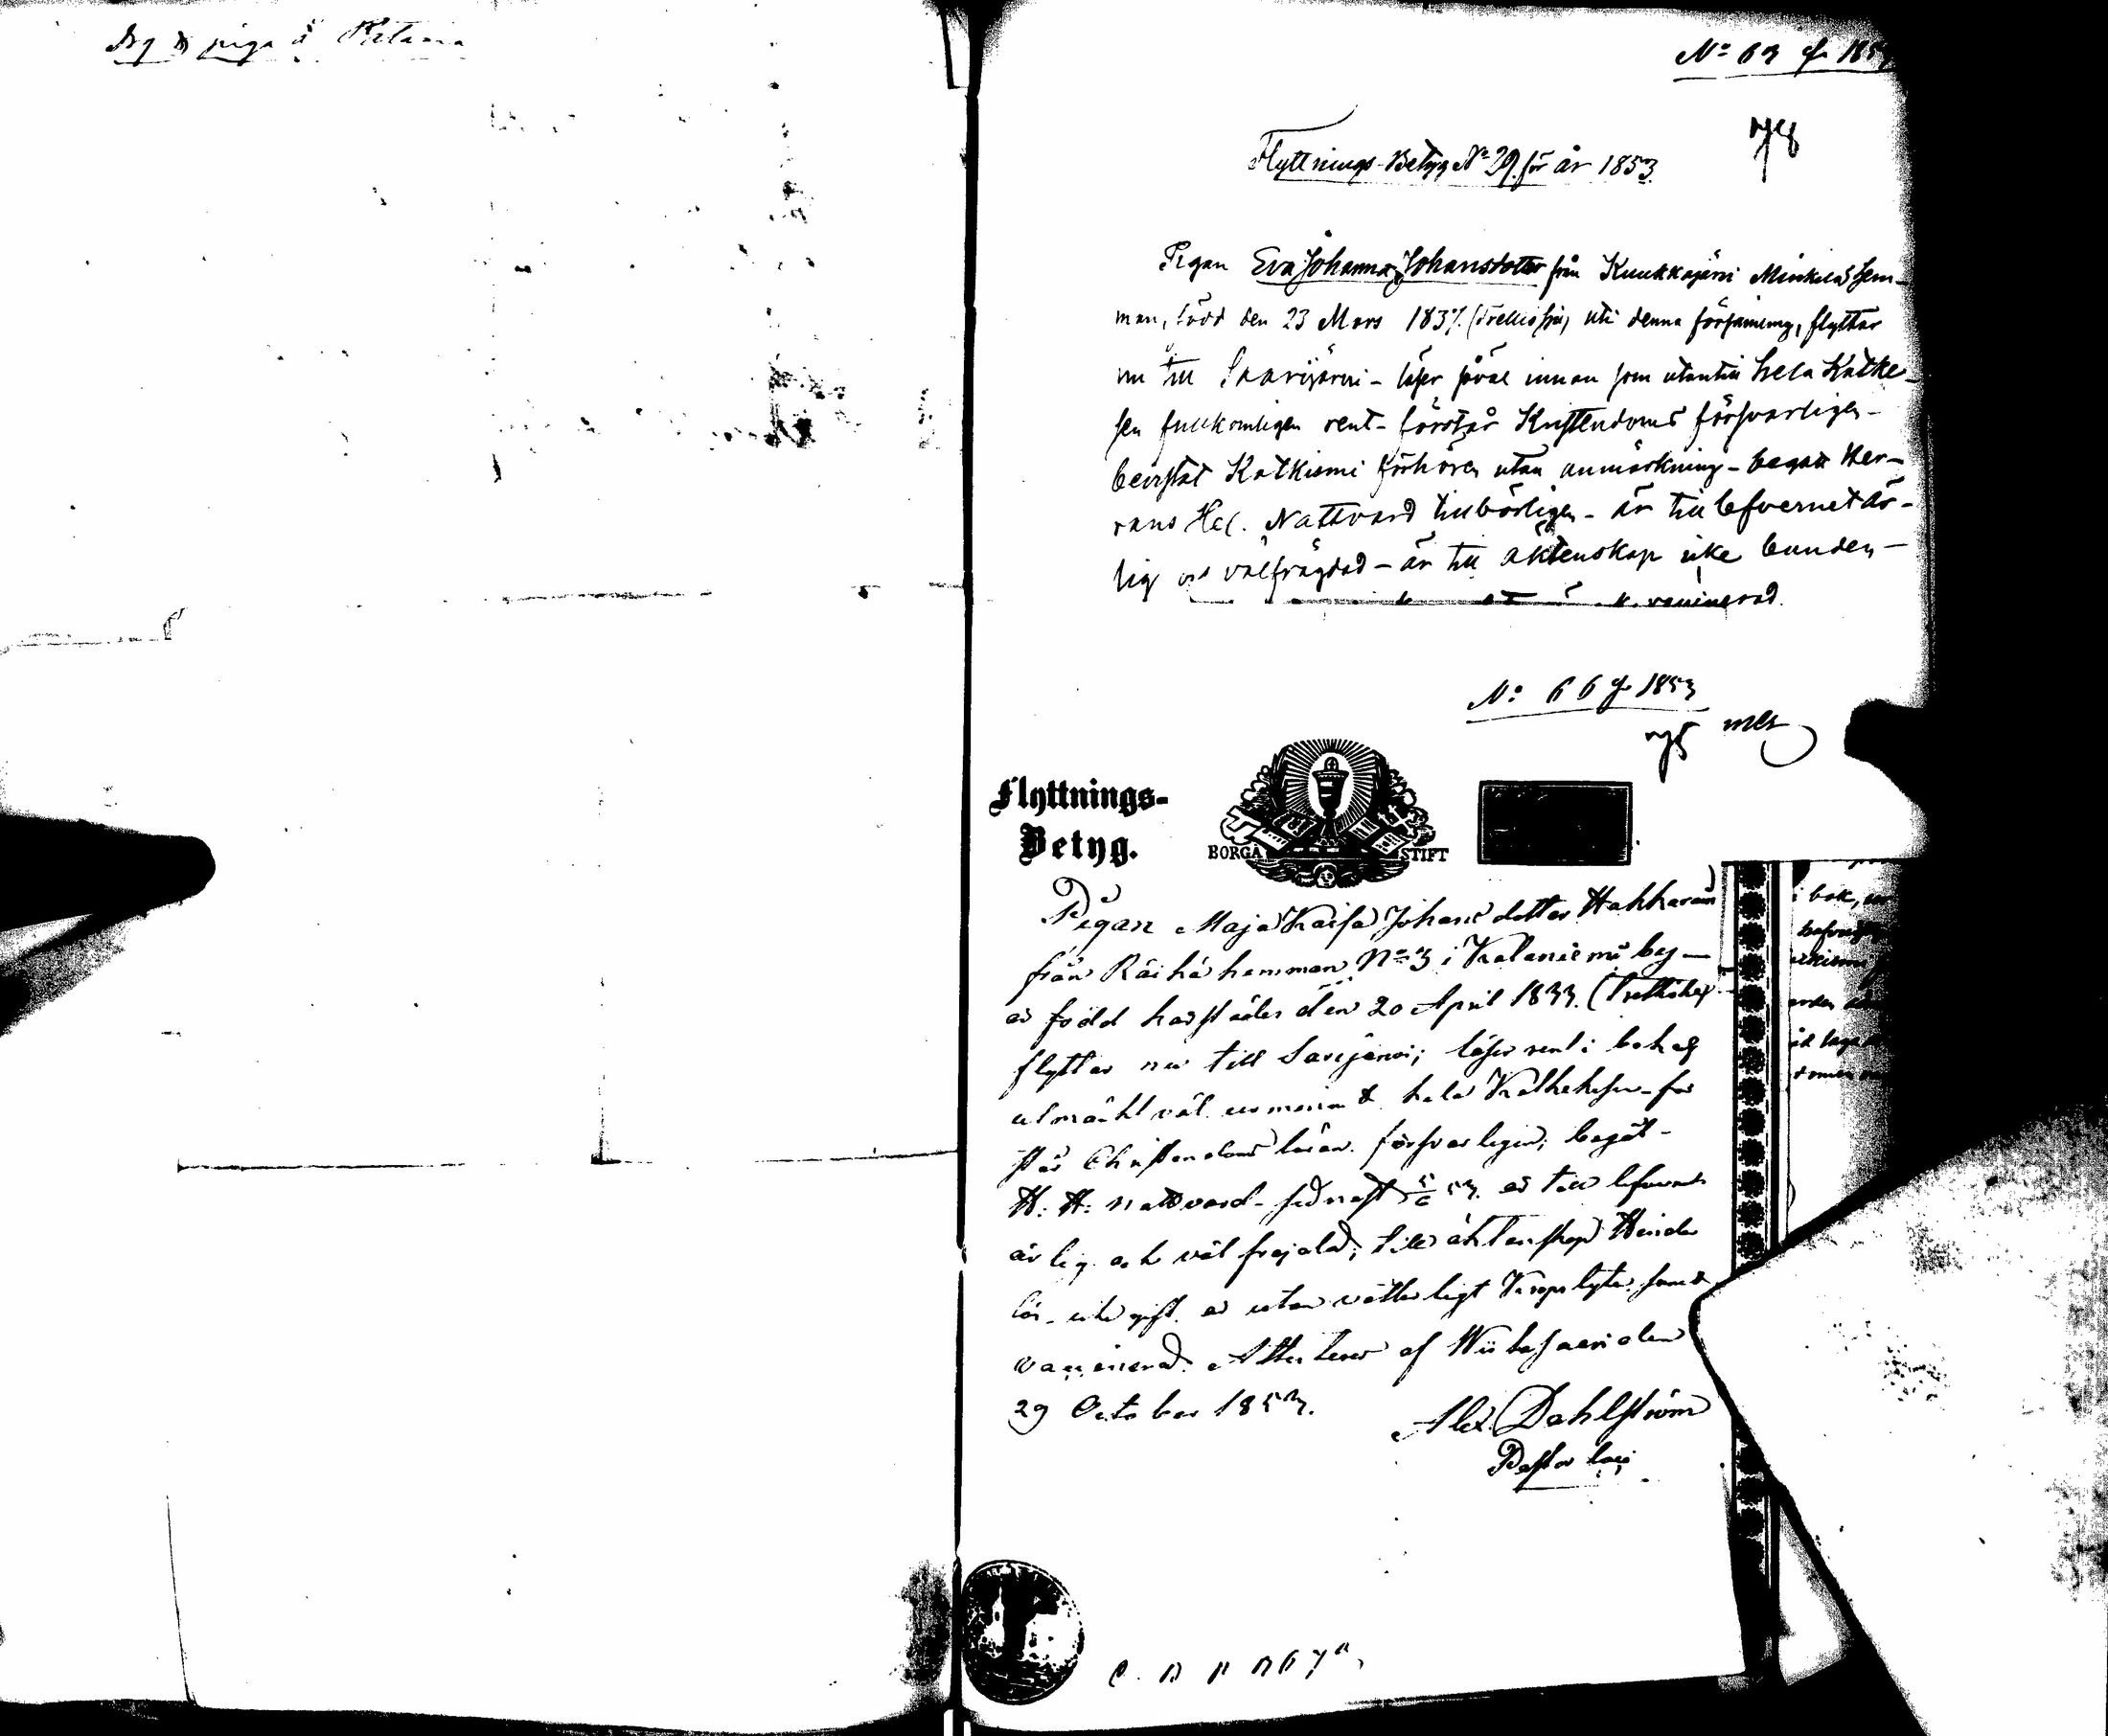 piga å
No 63 f 1853
78
Flyttnings-Betyg No 29. för år 1853
Pigan Eva Johanna Johansdotter från Kuukkajärvi hem-
man, född den 23 Mars 1837. uti denna församling, flyttar
nu till Saarijärvi - läser såväl innan som utantill hela Katke-
sen fullkomligen rent - förstår Kristendomen försvarligen -
bevistat Katkismi förhören utan anmärkning - begått Her-
rans Hel. Nattvard tillbörligen - är till lefvernet är-
lig och välfrägdad - är till äktenskap icke bunden -
vaccinerad.
No 66 f 1853
75
Flyttnings-
Betyg.
BORGÅ STIFT
Pigan Maja Kaisa Johans dotter
från Räihä hemman No 3 i Kalaniemi by -
är född härstädes den 20 April 1833.
flyttar nu till Sarijärvi; läser rent i bok
utmärkt väl hela Kathekesen - för
står Christendoms läran försvarligen; begått
H. H. nattvard - sednast 53. är till lefvernet
ärlig och väl frejdad; till äktenskap
utan Kropslyte samt
vaccinerad. Attesterar af Wiitasaari den
29 October 1853.
Alex. Dahlström
Pastor loci
bok,